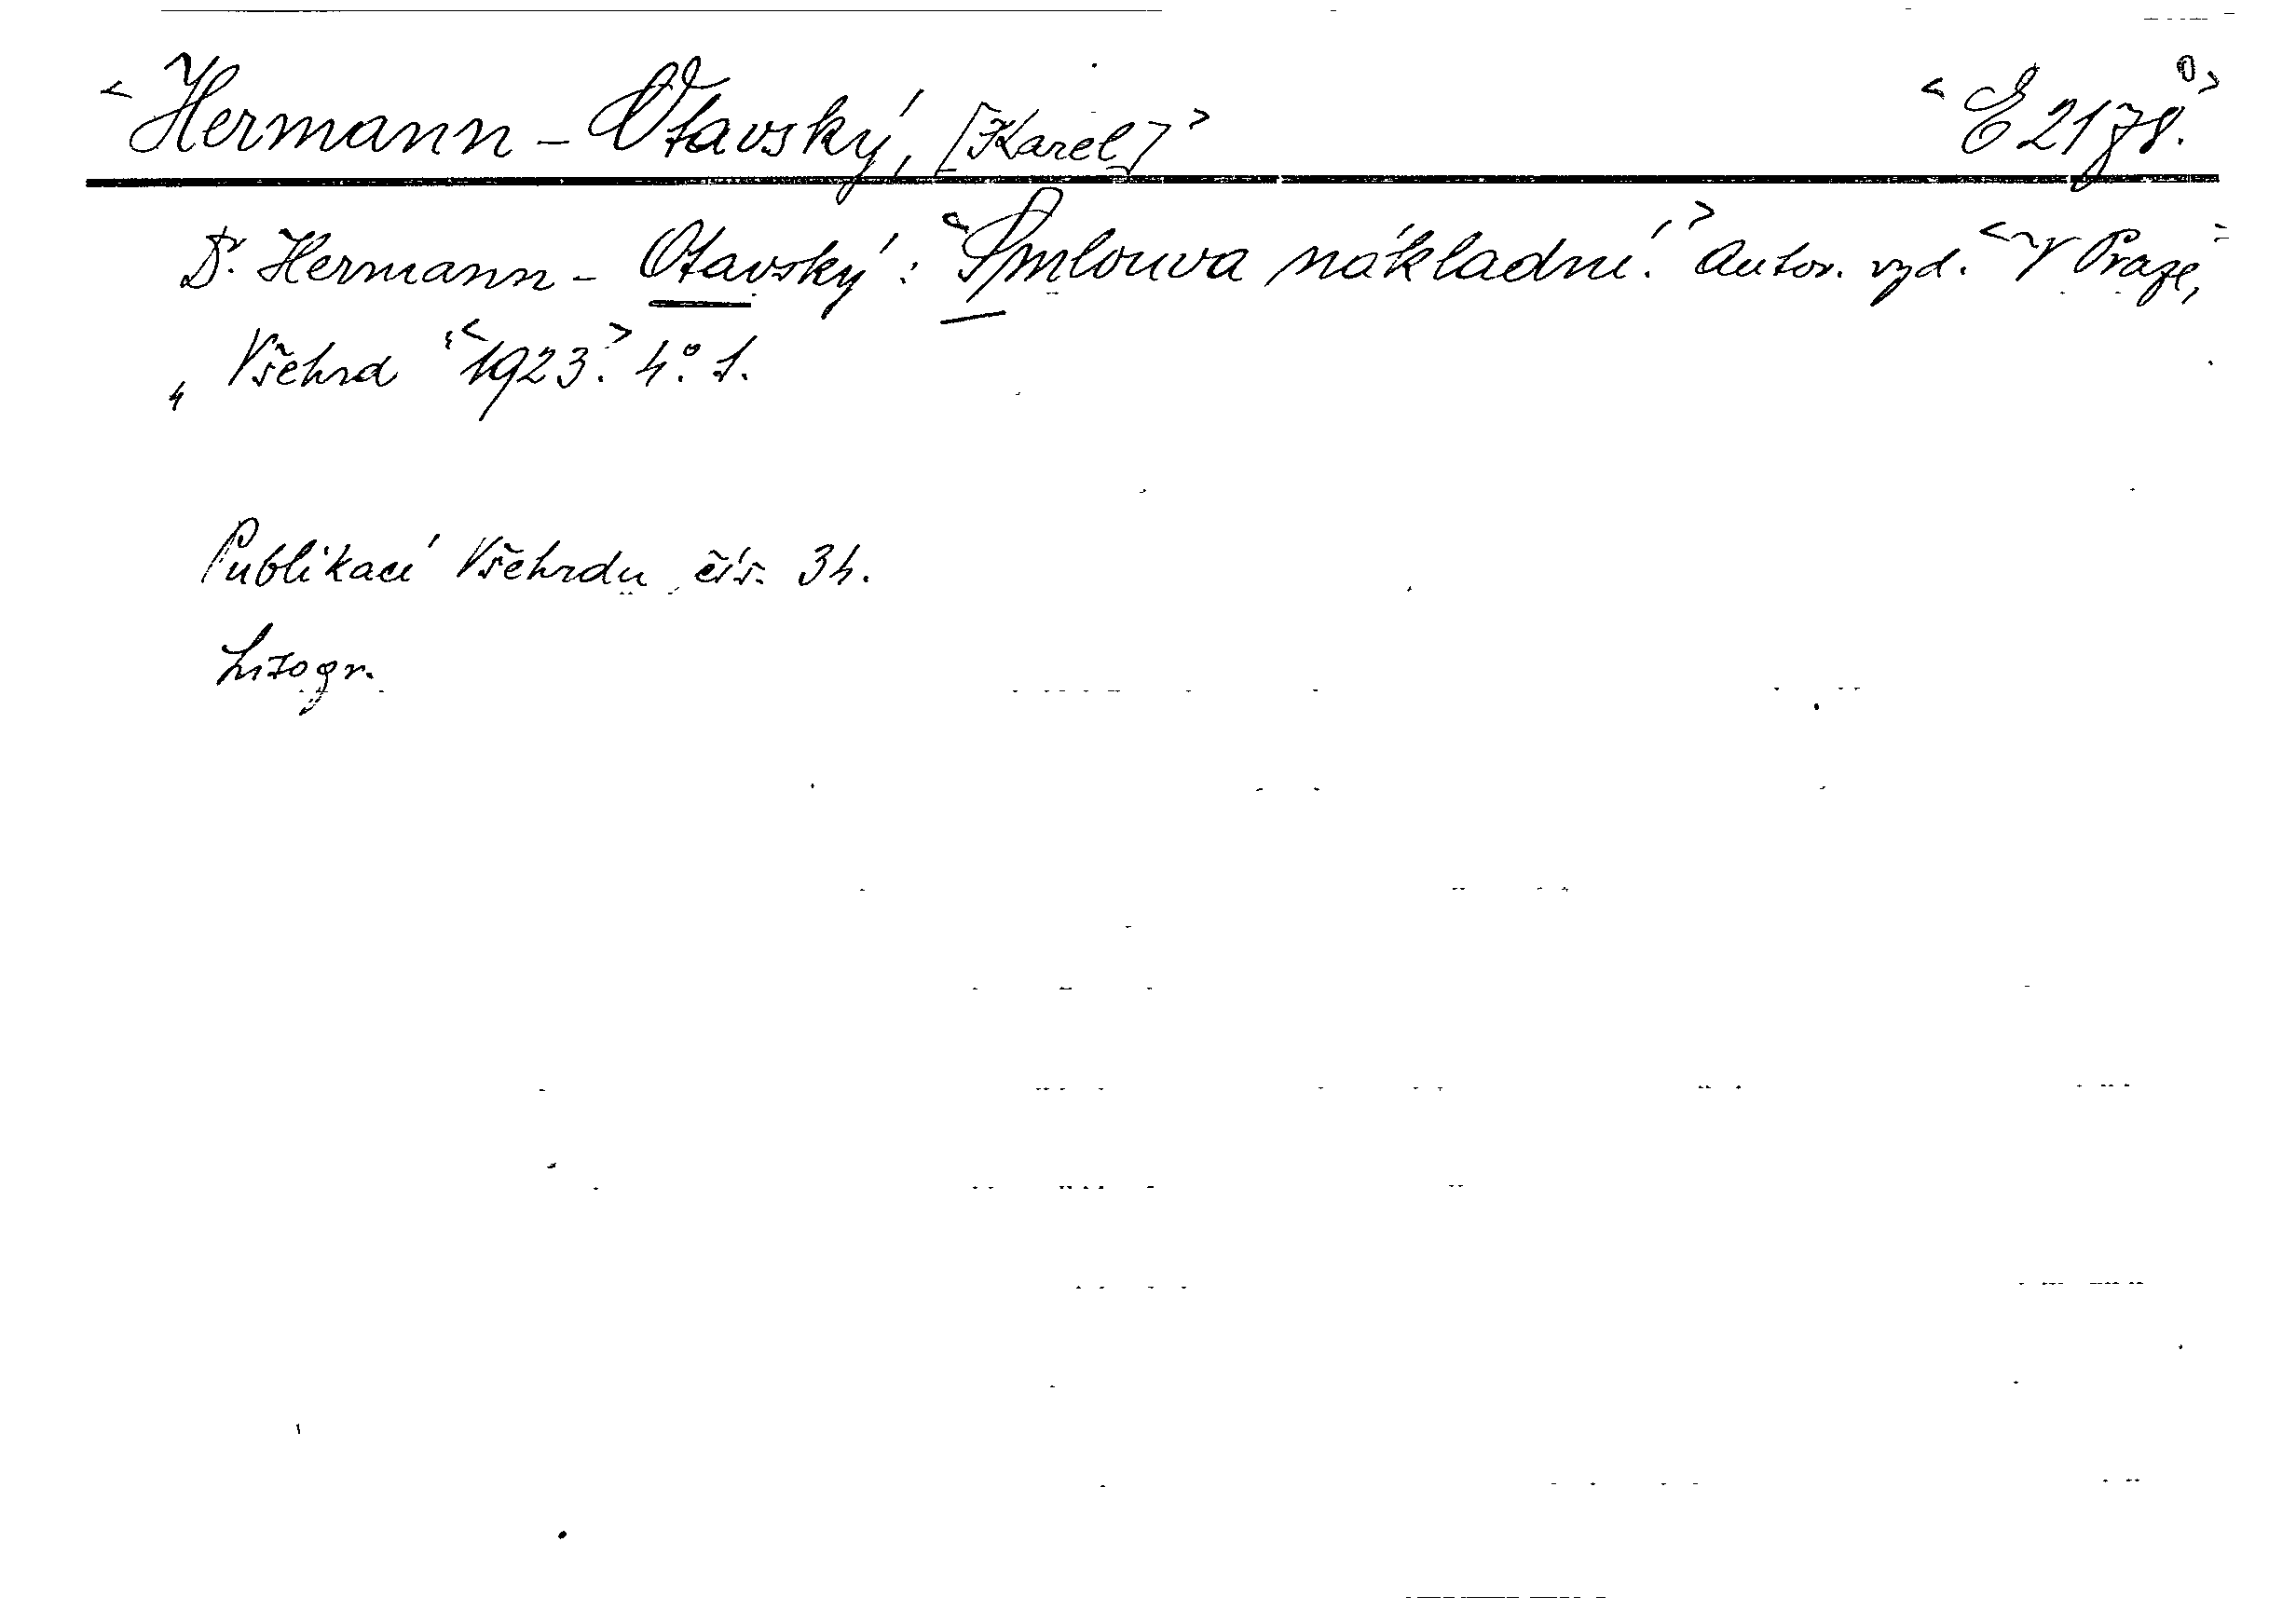 <Hermann-Otavský, [Karel]> <E 2178.>
Dr. Hermann - Otavský: <Smlouva nákladní.> Autor. vyd. <V Praze,>
„Všehrd“ <1923.> 4°. 1.
Publikací Všehrdu čís. 34.
Litogr.